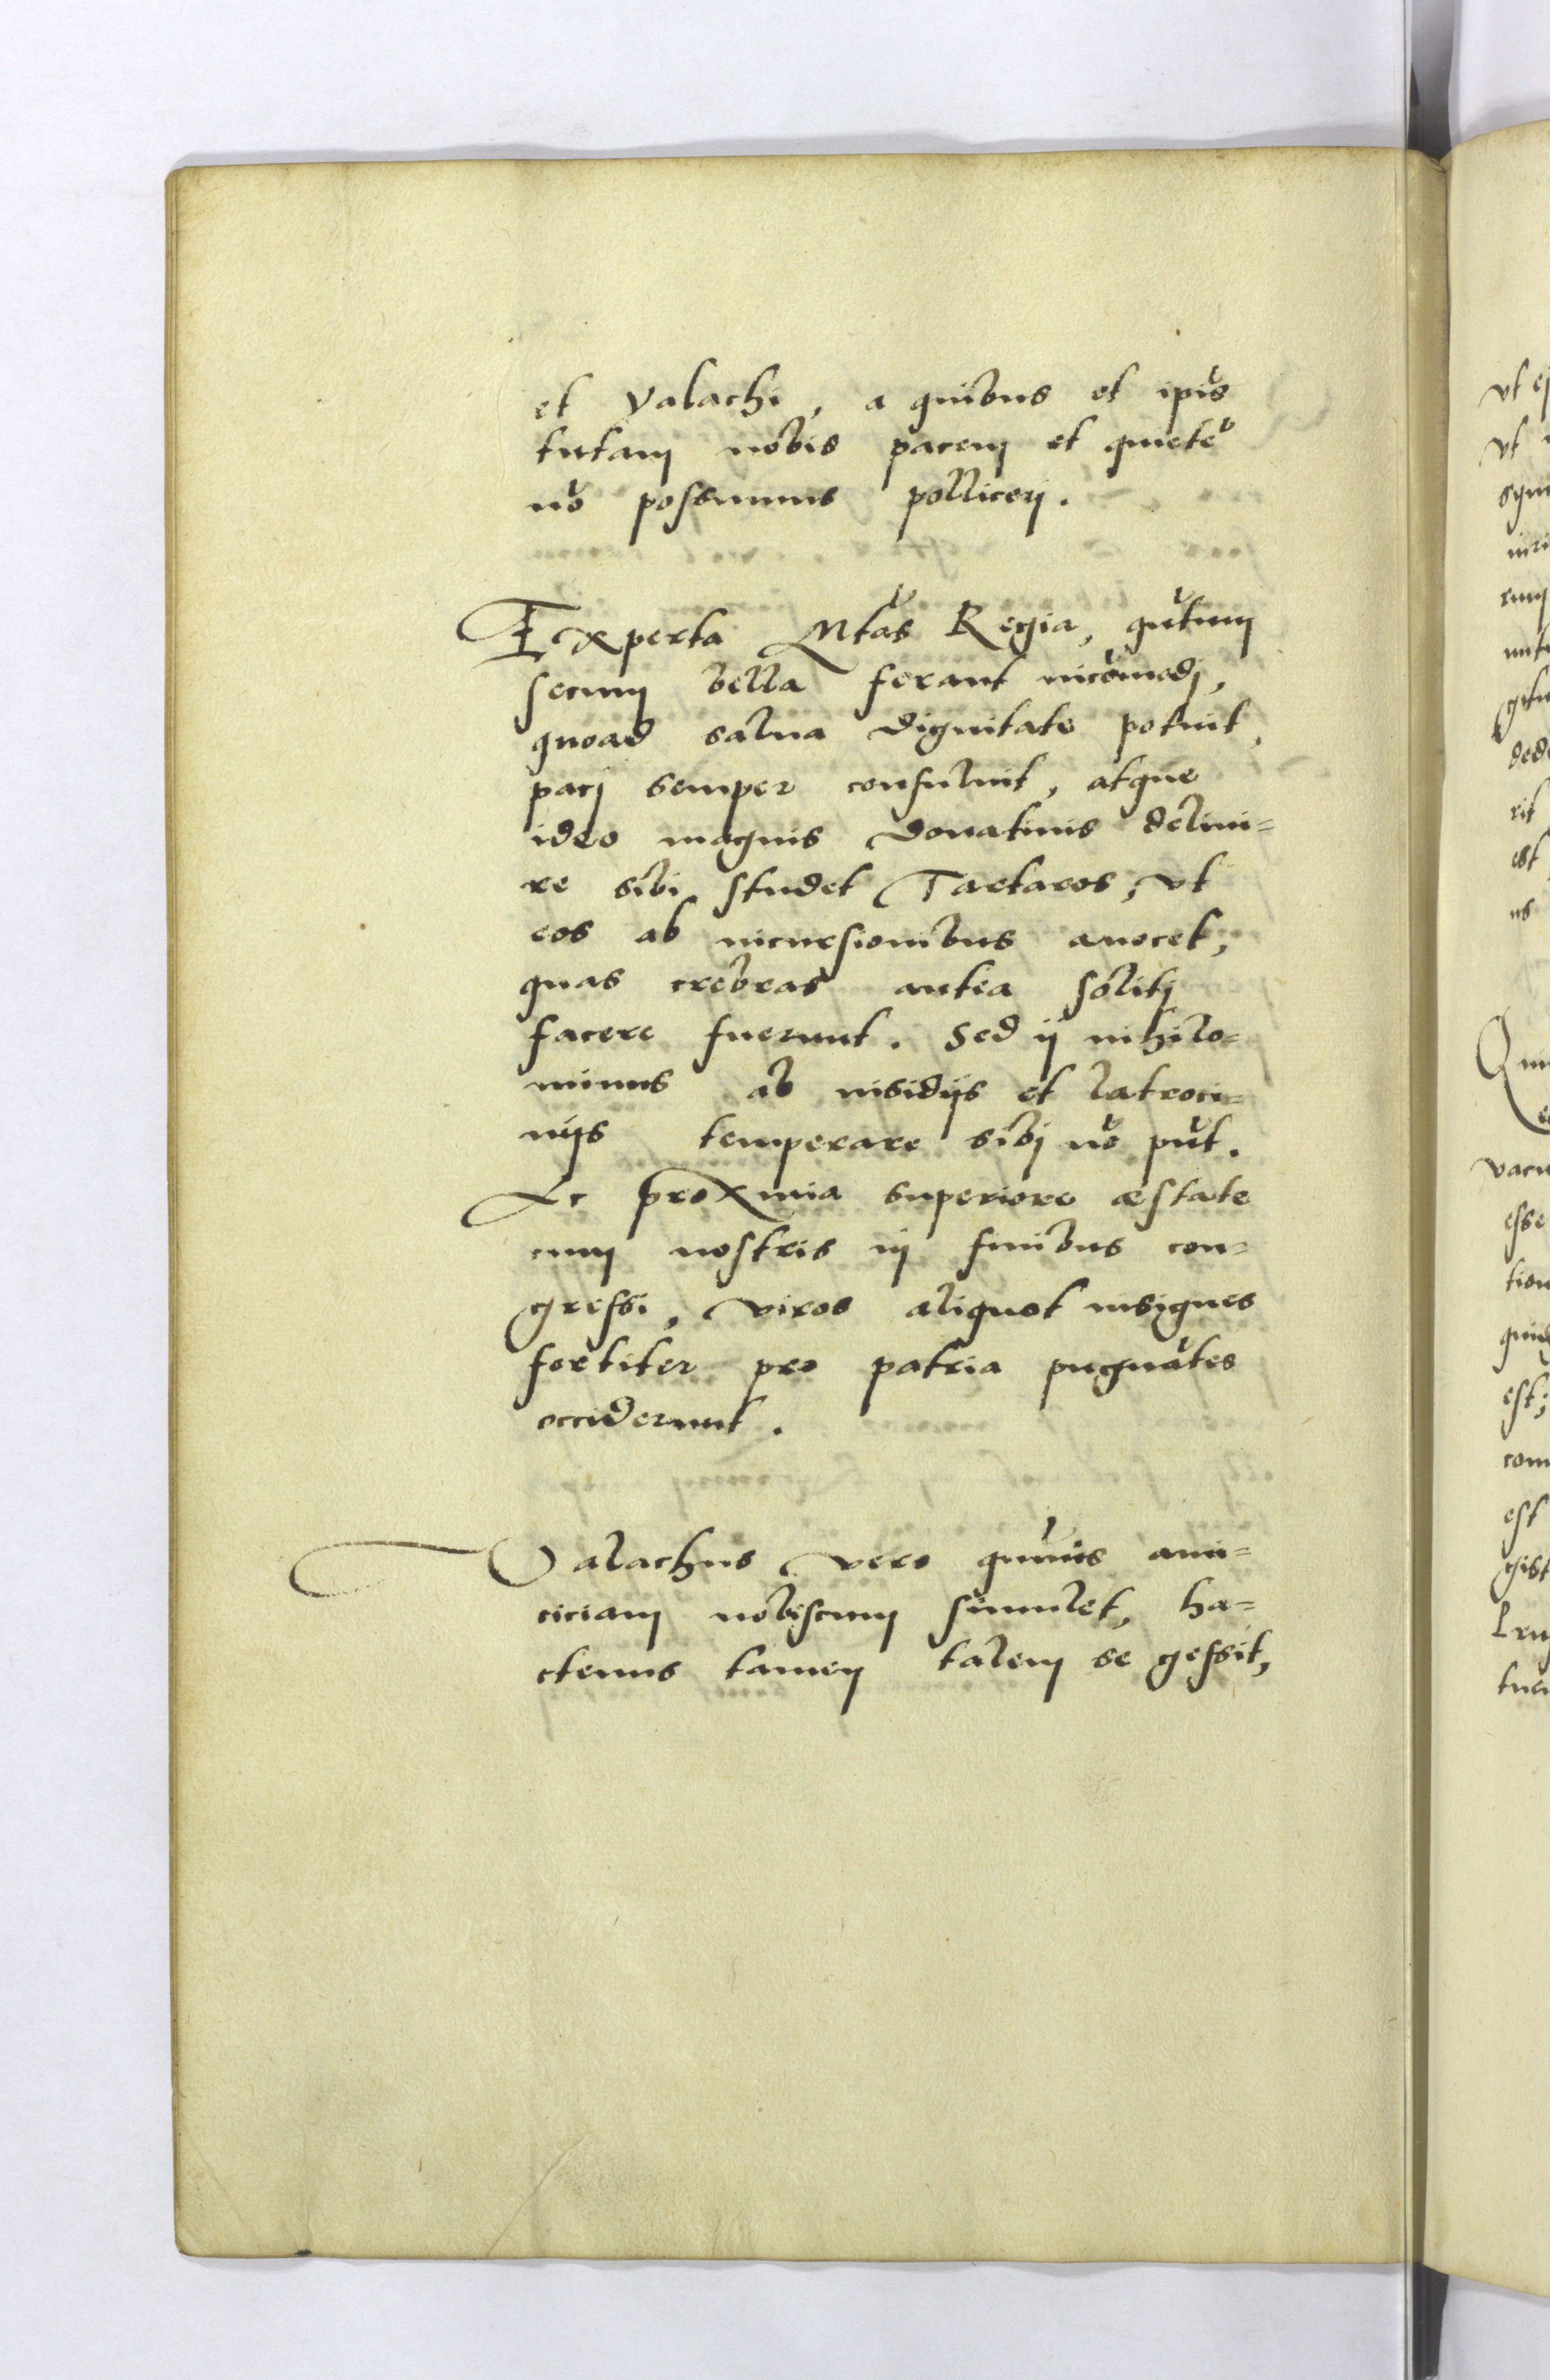 et Valachi, a quibus et ipīs
tutam nobis pacem et quietē
nō possumus polliceri.
Experta Mtās Regia, quātum
secum bella ferant incōmodi,
quoad salua dignitate potuit,
paci semper consuluit, atque
ideo magnis donatiuis delini=
re sibi studet Tartaros, vt
eos ab incursionibus auocet,
quas crebras antea soliti
facere fuerunt. Sed ij nihilo=
minus ab insidijs et latroci=
nijs temperare sibi nō pñt.
Ac proxima superiore æstate
cum nostris in finibus con=
gressi, viros aliquot insignes
fortiter pro patria pugnātes
occiderunt.
Valachus vero quāuis ami=
ciciam nobiscum simulet, ha=
ctenus tamen talem se gessit,